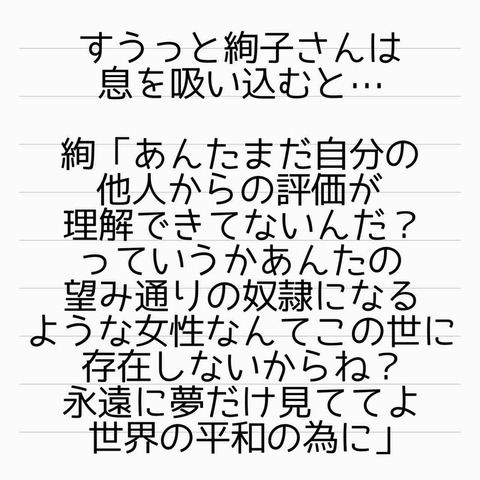 すうっと絢子さんは
息を吸い込むと…
絢「あんたまだ自分の
他人からの評価が
理解できてないんだ？
っていうかあんたの
望み通りの奴隷になる
ような女性なんてこの世に
存在しないからね？
永遠に夢だけ見ててよ
世界の平和の為に」